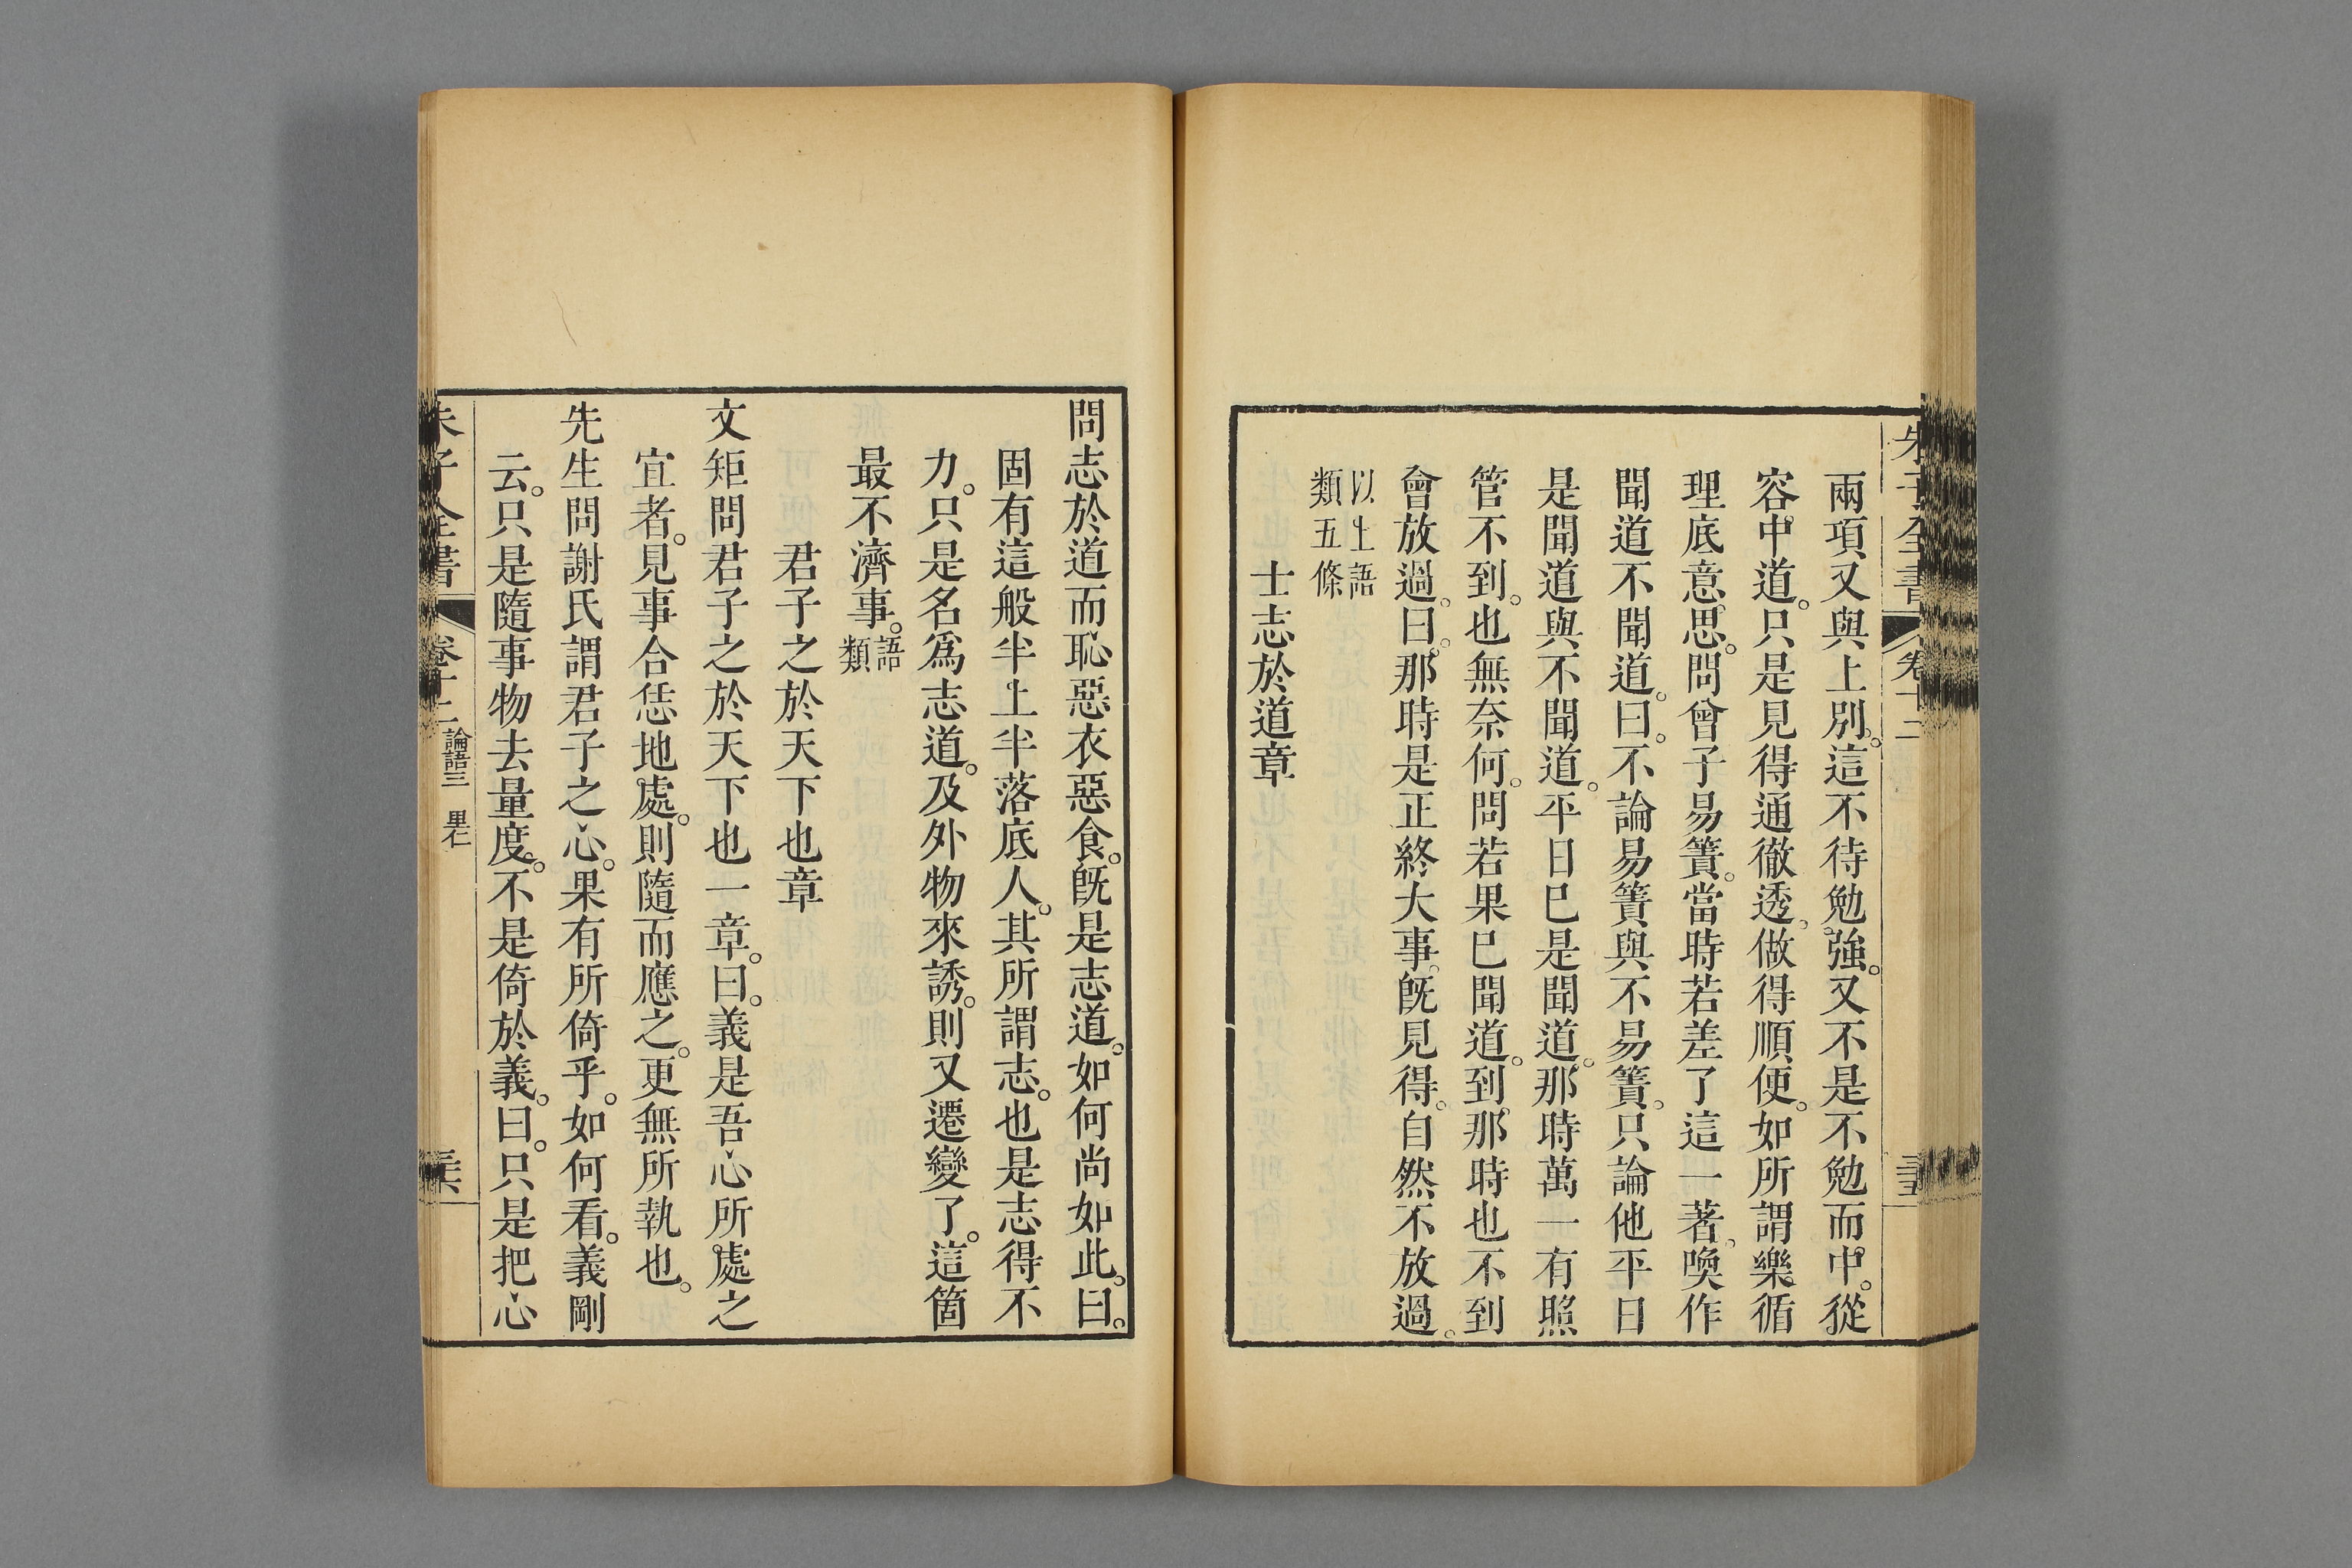 朱子全書 卷十二
兩項又與上別。這不待勉強。又不是不勉而中。從
容中道。只是見得通徹透。做得順便。如所謂樂循
理底意思。問曾子易簀。當時若差了這一著。喚作
聞道不聞道。曰。不論易簀與不易簀。只論他平日
是聞道與不聞道。平日已是聞道。那時萬一有照
管不到。也無奈何。問若果已聞道。到那時也不到
會放過。曰。那時是正終大事。既見得。自然不放過。
以上語
類五條
士志於道章
問志於道而恥惡衣惡食。既是志道。如何尚如此。曰。
固有這般半上半落底人。其所謂志。也是志得不
力。只是名爲志道。及外物來誘。則又遷變了。這箇
最不濟事。語類
君子之於天下也章
文矩問君子之於天下也一章。曰。義是吾心所處之
宜者。見事合恁地處。則隨而應之。更無所執也。
先生問謝氏謂君子之心。果有所倚乎。如何看。義剛
云。只是隨事物去量度。不是倚於義。曰。只是把心
朱子全書 卷十二 論語三 里仁